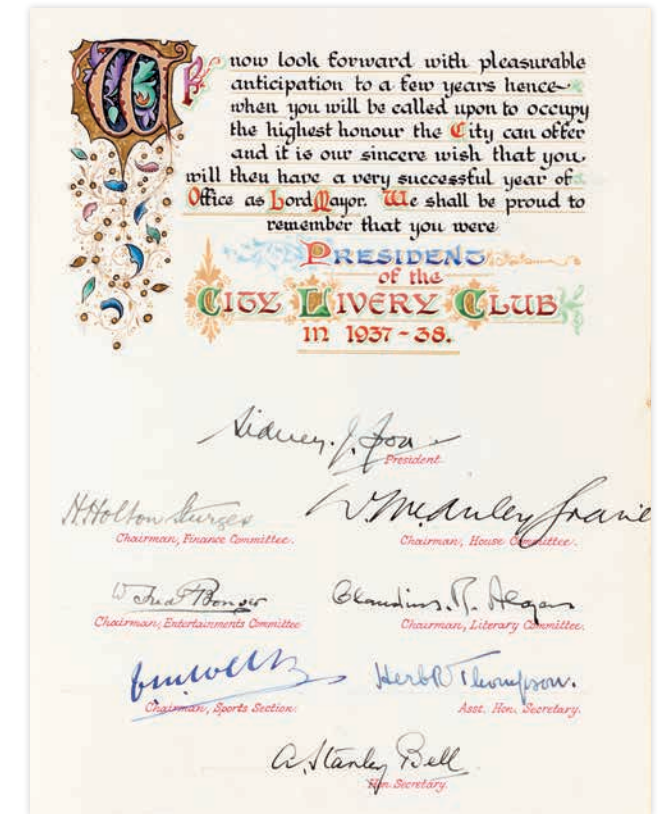 We now look forward with pleasurable
anticipation to a few years hence
when you will be called upon to occupy
the highest honour the City can offer
and it is our sincere wish that you
will then have a very successful year of
Office as Lord Mayor. We shall be proud to
remember that you were
PRESIDENT
of the
CITY LIVERY CLUB
in 1937-38.
Sidney. J. Fox
President.
H. Holton Sturges
Chairman, Finance Committee.
Chairman, House Committee.
Chairman, Entertainments Committee
Chairman, Literary Committee.
Chairman, Sports Section.
Herbt Thompson.
Asst. Hon. Secretary.
A. Stanley Bell
Hon. Secretary.